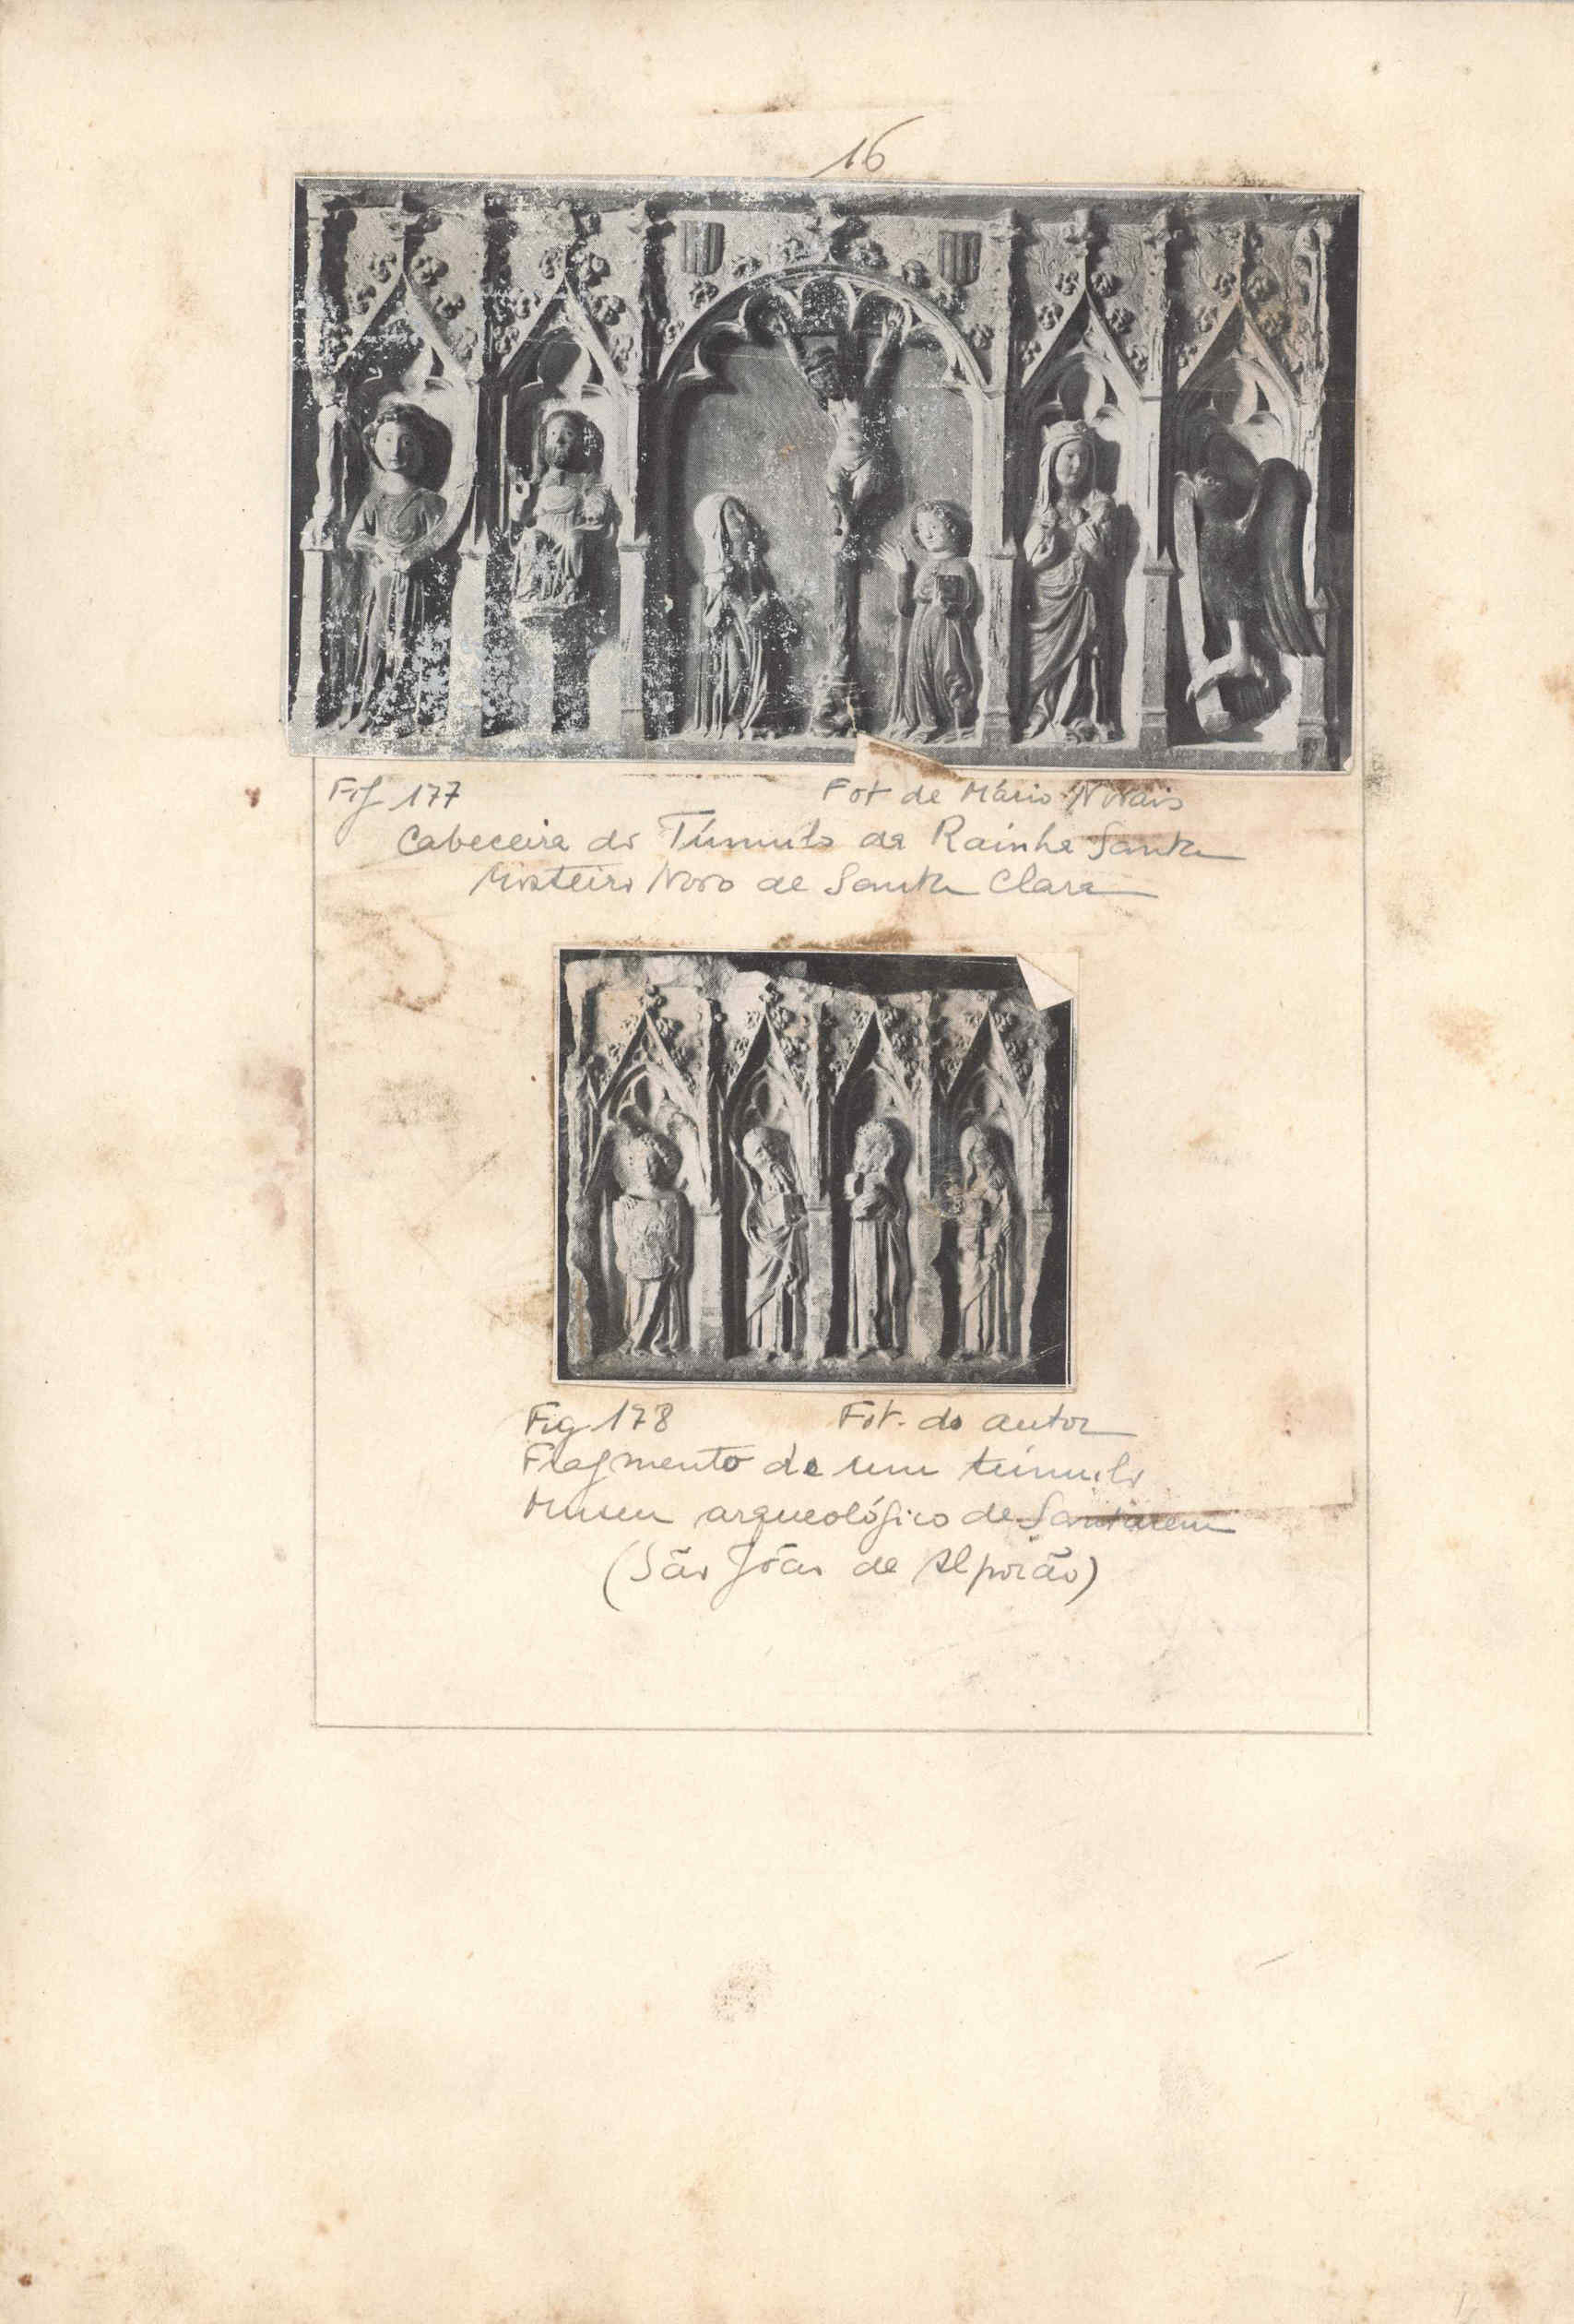 16
Fig 177 Fot de Mário Novais
Cabeceira do Túmulo da Rainha Santa
Mosteiro Novo de Santa Clara
Fig 178 Fot. do autor
Fragmento de um túmulo
Museu arqueológico de Santarem
(São João de Alporão)